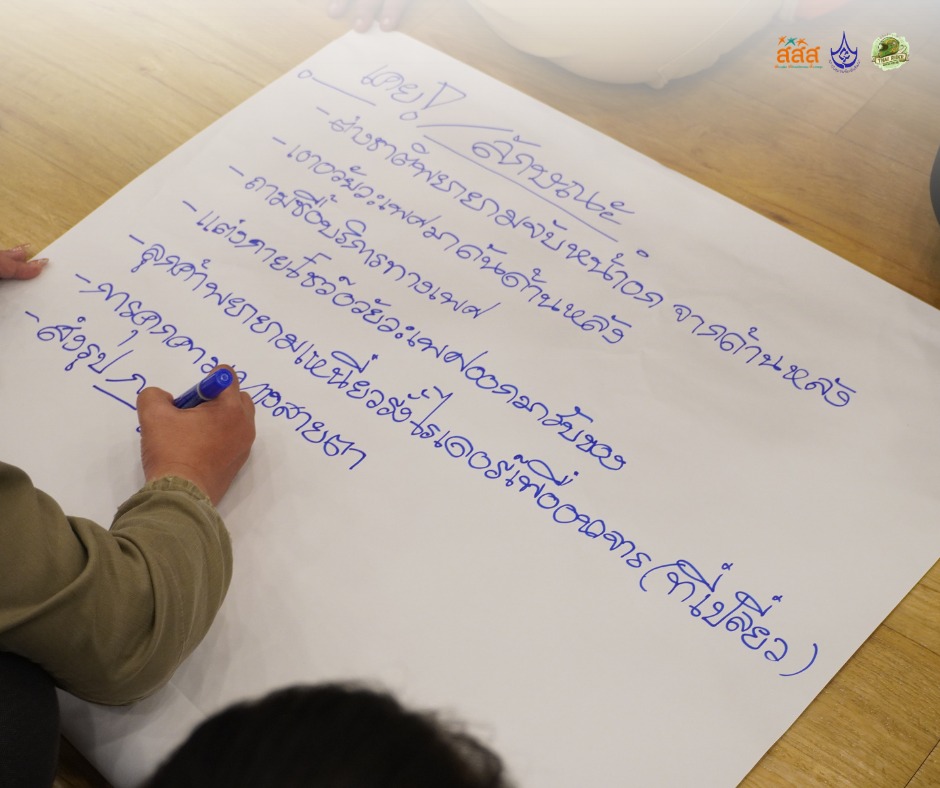 สสส
เคย! / ลักษณะ
- ส่งยาสพยายามจับหน้าอก จากด้านหลัง
- เอาอวัยวะเพศมาดันด้านหลัง
- ถามซื้อบริการทางเพศ
- แต่งกายโชว์อวัยวะเพศออกมารับของ
- ลูกค้าพยายามเหนี่ยวรั้งไรเดอร์เพื่ออนาจาร (ที่เปลี่ยว)
- การคุกคามทางสายตา
- ส่งรูป